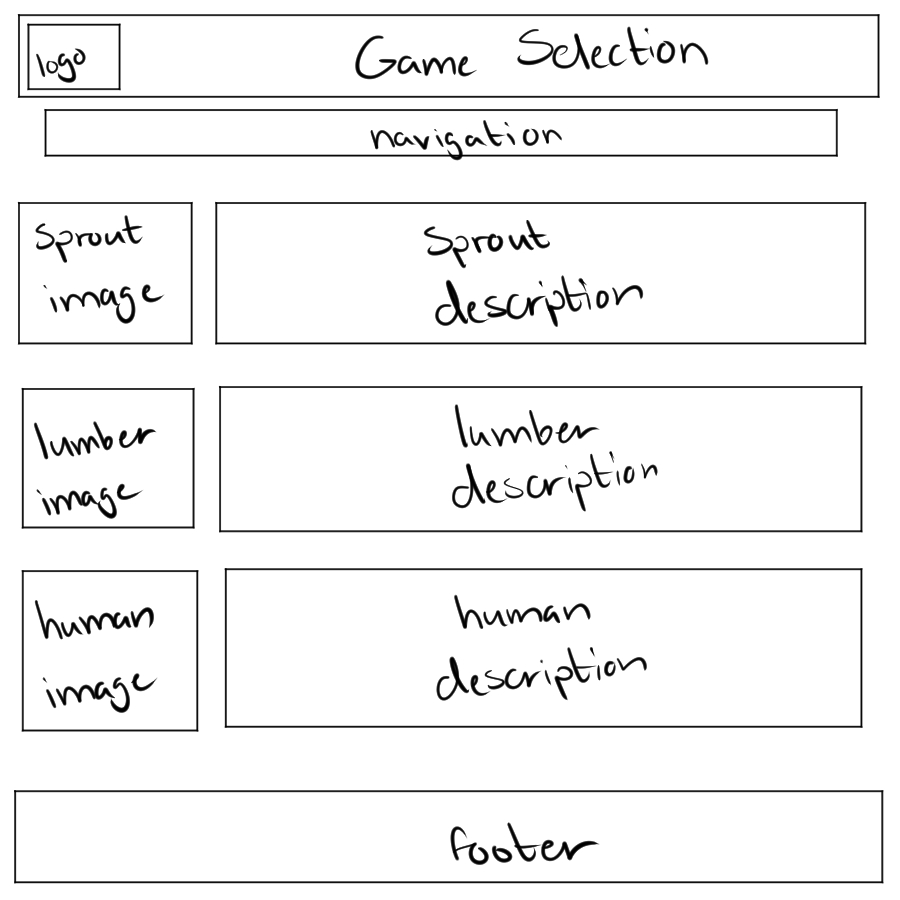 logo
Game Selection
navigation
Sprout
image
Sprout
description
lumber
image
lumber
description
human
image
human
description
footer